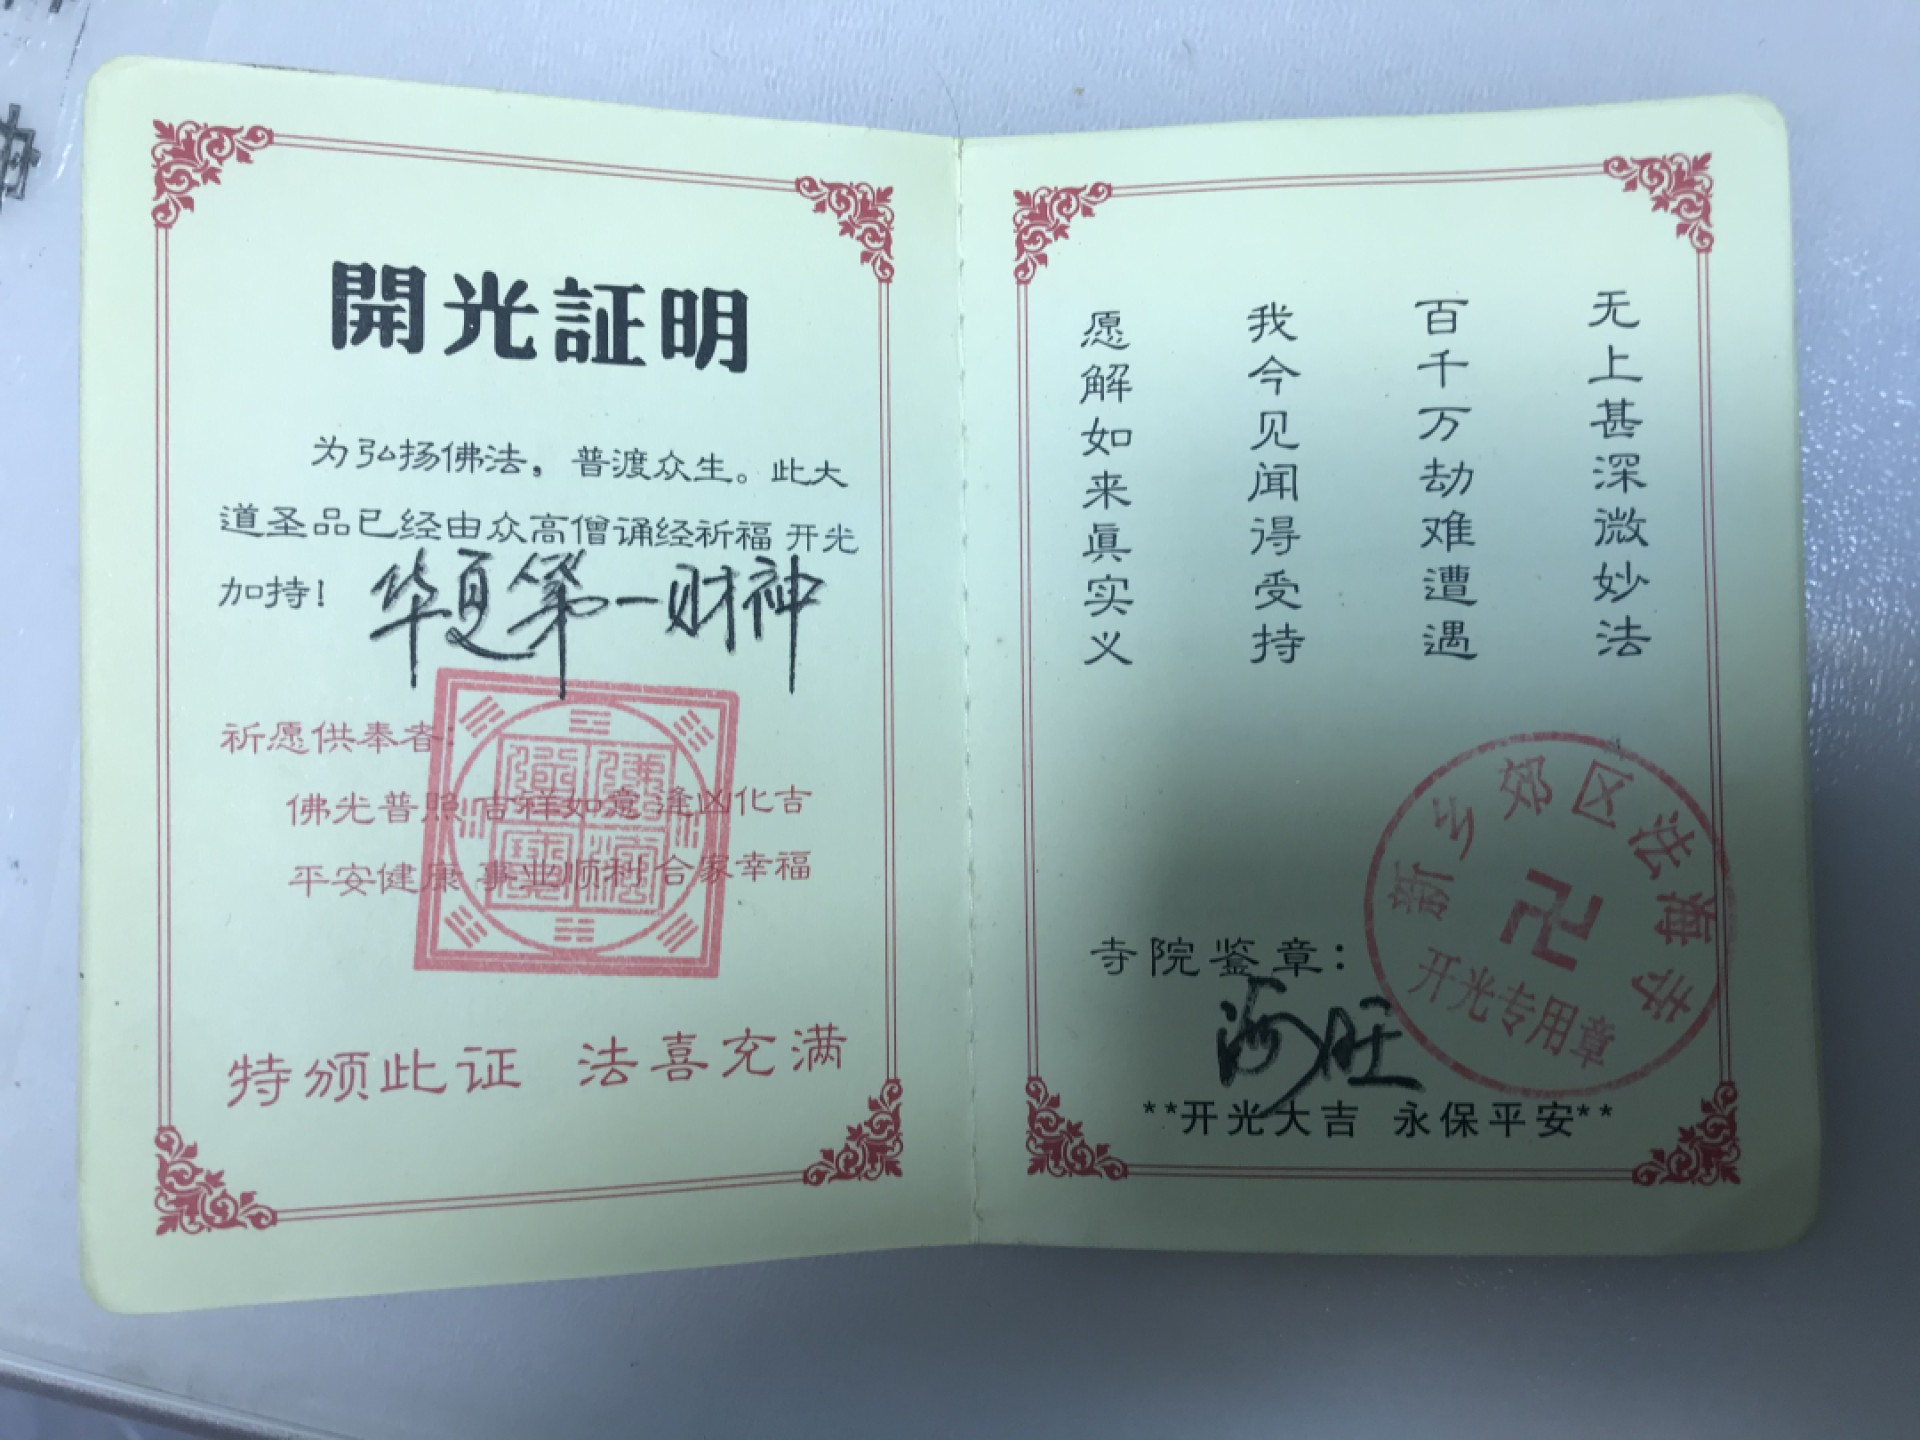 開光証明
为弘扬佛法，普渡众生。此大
道圣品已经由众高僧诵经祈福 开光
加持！ 华夏第一财神
祈愿供奉者：
佛光普照 吉祥如意 逢凶化吉
平安健康 事业顺利 合家幸福
佛法僧寳
特颁此证 法喜充满
无上甚深微妙法
百千万劫难遭遇
我今见闻得受持
愿解如来眞实义
新乡郊区法藏寺
卍
开光专用章
寺院鉴章：
海旺
**开光大吉 永保平安**